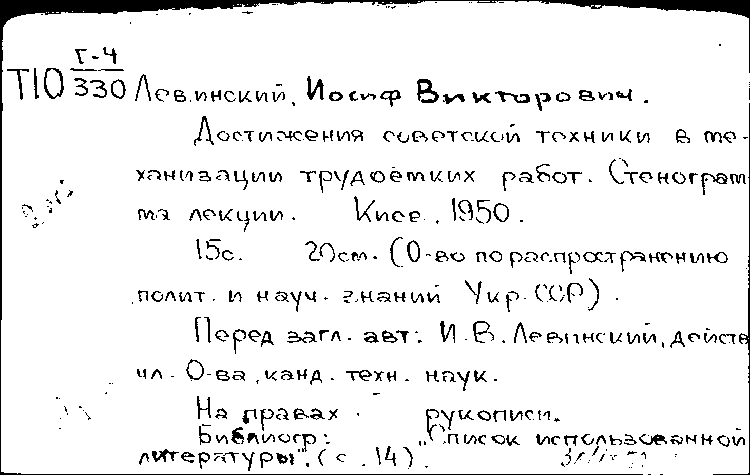 Г-4
Т10 330 Левинский, Иосиф Викторович.
Достижения советской техники в ме-
ханизации трудоёмких работ. Стенограм
ма лекции. Киев, 1950.
15с. 20см. (О-во по распространению
полит. и науч. знаний Укр. ССР).
Перед загл. авт: И.В. Левинский, действ
чл. О-ва, канд. техн. наук.
На правах рукописи.
Библиогр: "Список использованной
литературы". (с. 14).